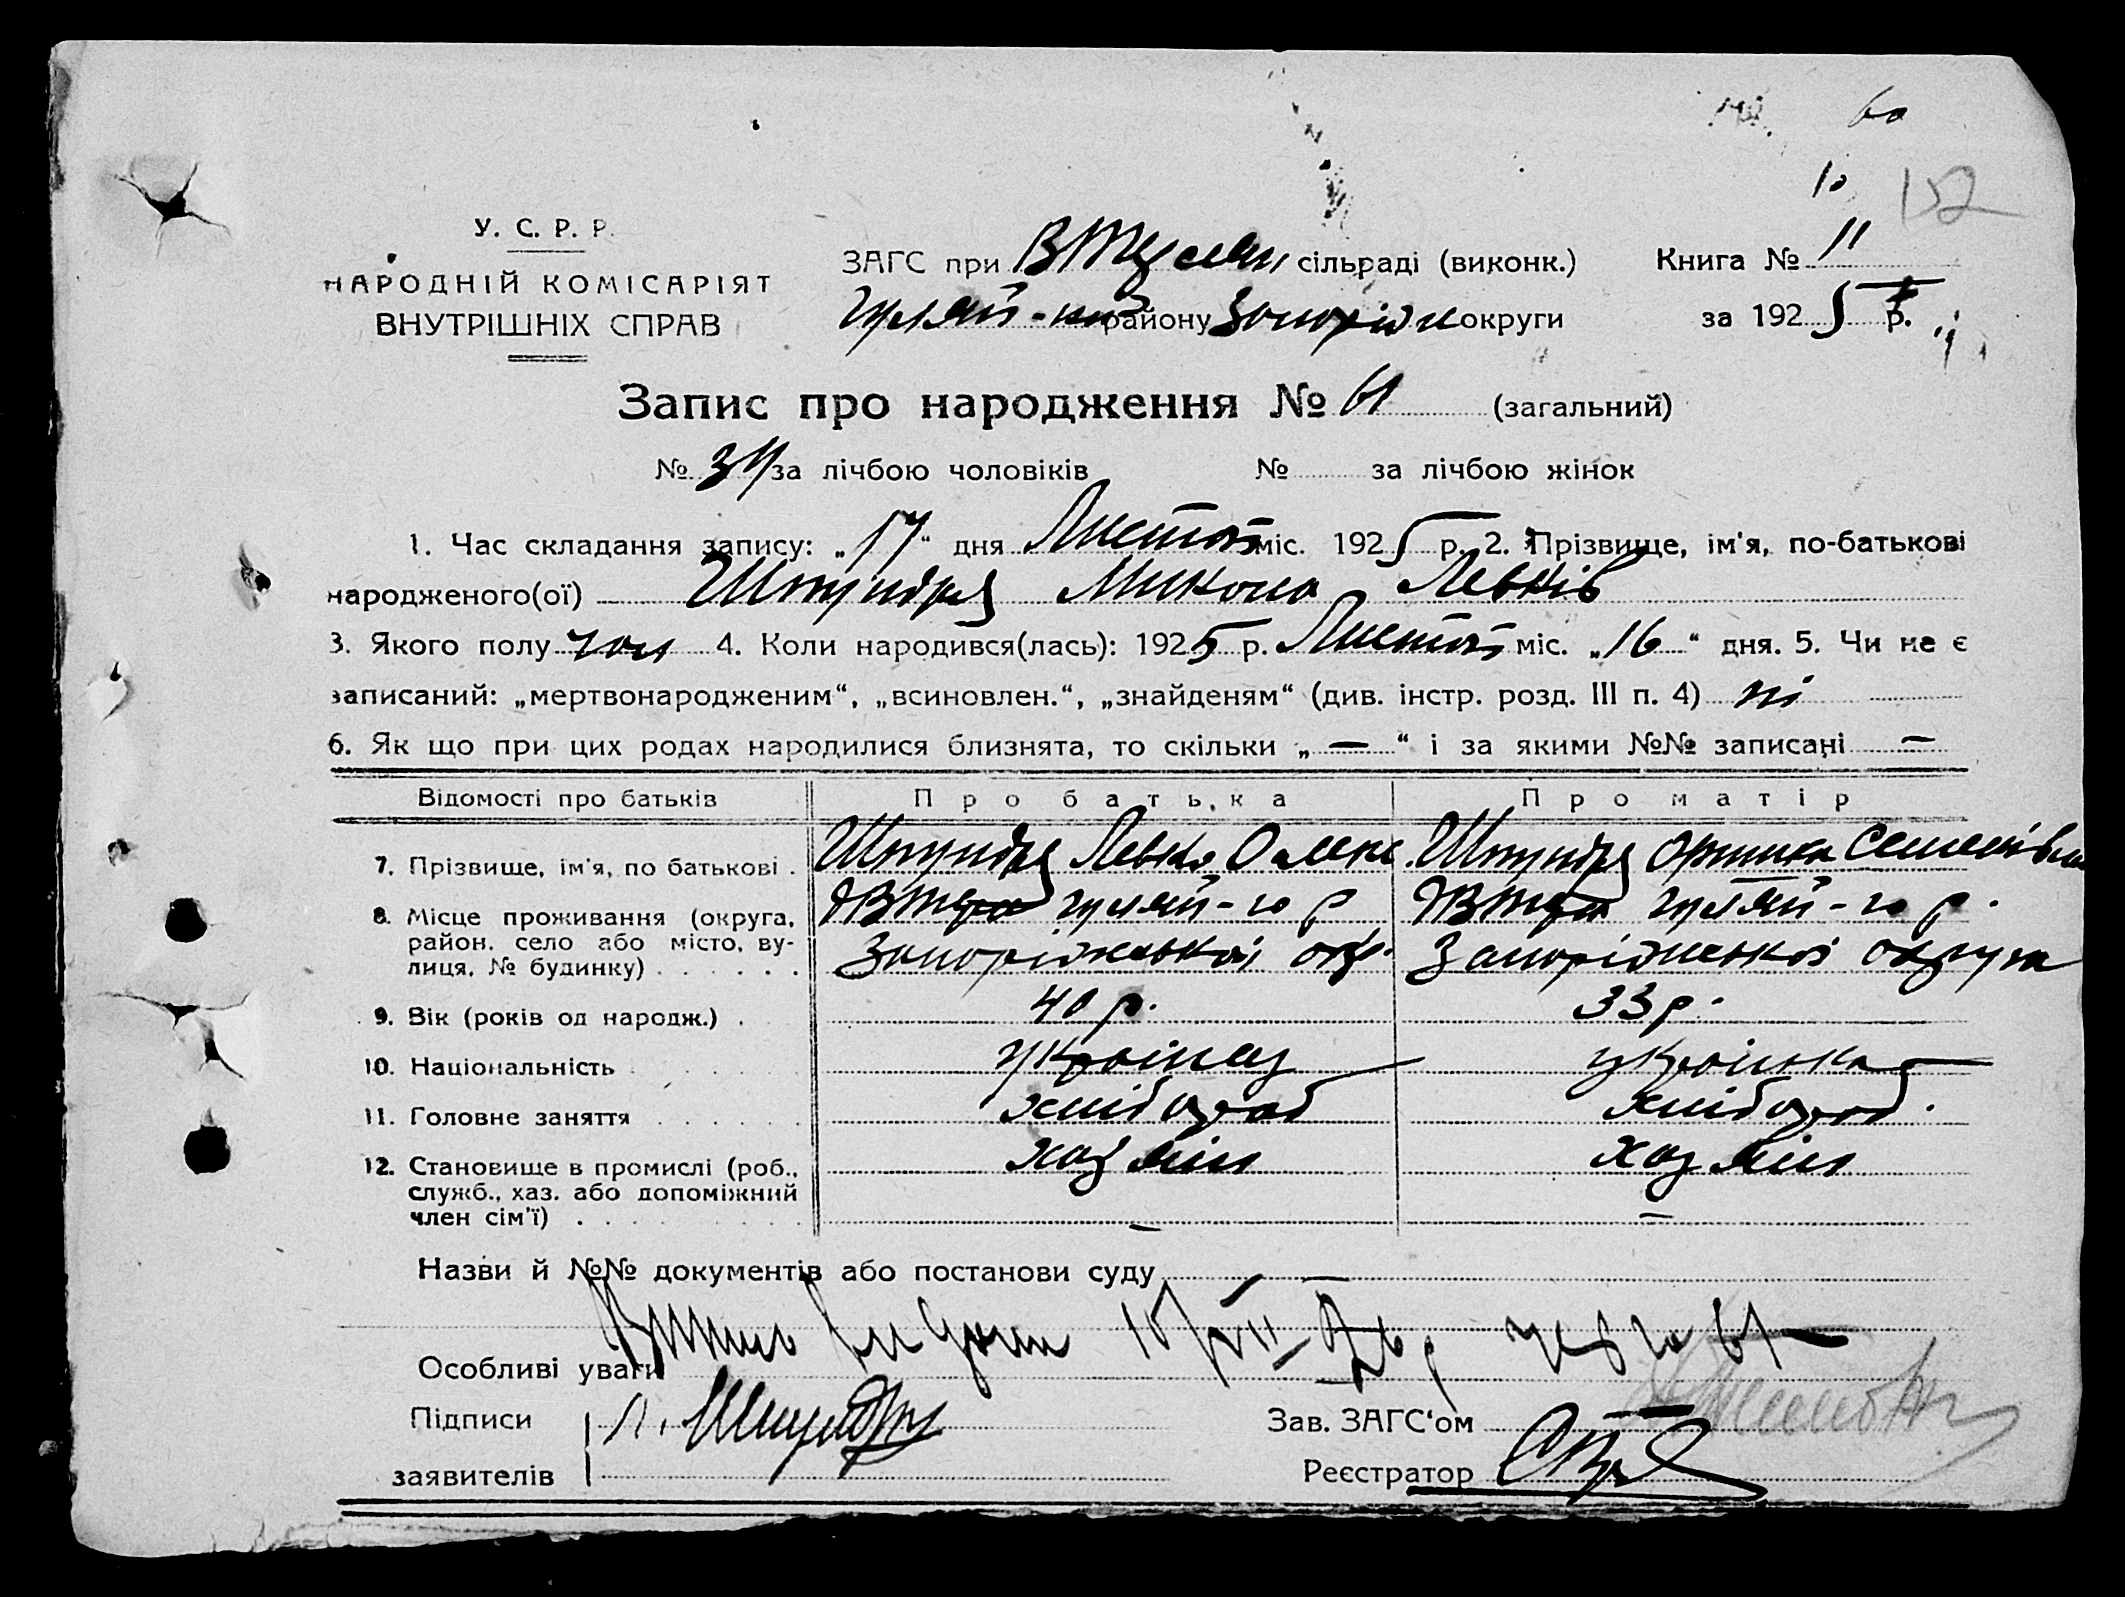 60
10
152
У. С. Р. Р.
НАРОДНІЙ КОМІСАРІЯТ
ВНУТРІШНІХ СПРАВ
ЗАГС при сільраді (виконк.) Книга № 11
Гуляй-п району Запоріж округи за 1925 р.
Запис про народження № 61 (загальний)
№ 34 за лічбою чоловіків № за лічбою жінок
1. Час складання запису: „17“ дня Листоп міс. 1925 р. 2. Прізвище, ім'я, по-батькові
народженого(ої) Штундря Микола Левків
3. Якого полу чол 4. Коли народився(лась): 1925 р. Листоп міс. „16“ дня. 5. Чи не є
записаний: „мертвонародженим“, „всиновлен.“, „знайденям“ (див. інстр. розд. III п. 4) ні
6. Як що при цих родах народилися близнята, то скільки „ — “ і за якими №№ записані —
Відомості про батьків Про батька Про матір
7. Прізвище, ім'я, по батькові . Штундря Левко Олекс. Штундря Оришка Семенівна
8. Місце проживання (округа, Гуляй-го р Гуляй-го р.
район, село або місто, ву- Запоріжської окр. Запоріжської округи
лиця, № будинку) . . . . . .
9. Вік (років од народж.) . 40 р. 33 р.
10. Національність українец українка
11. Головне заняття . . . . . . хлібороб хлібороб.
12. Становище в промислі (роб., хаз
служб., хаз. або допоміжний
член сім'ї) . . . . . . . . . — —
Назви й №№ документів або постанови суду —
61 —
Особливі уваги
Підписи Л. Штундря Зав. ЗАГС‘ом
заявителів Реєстратор